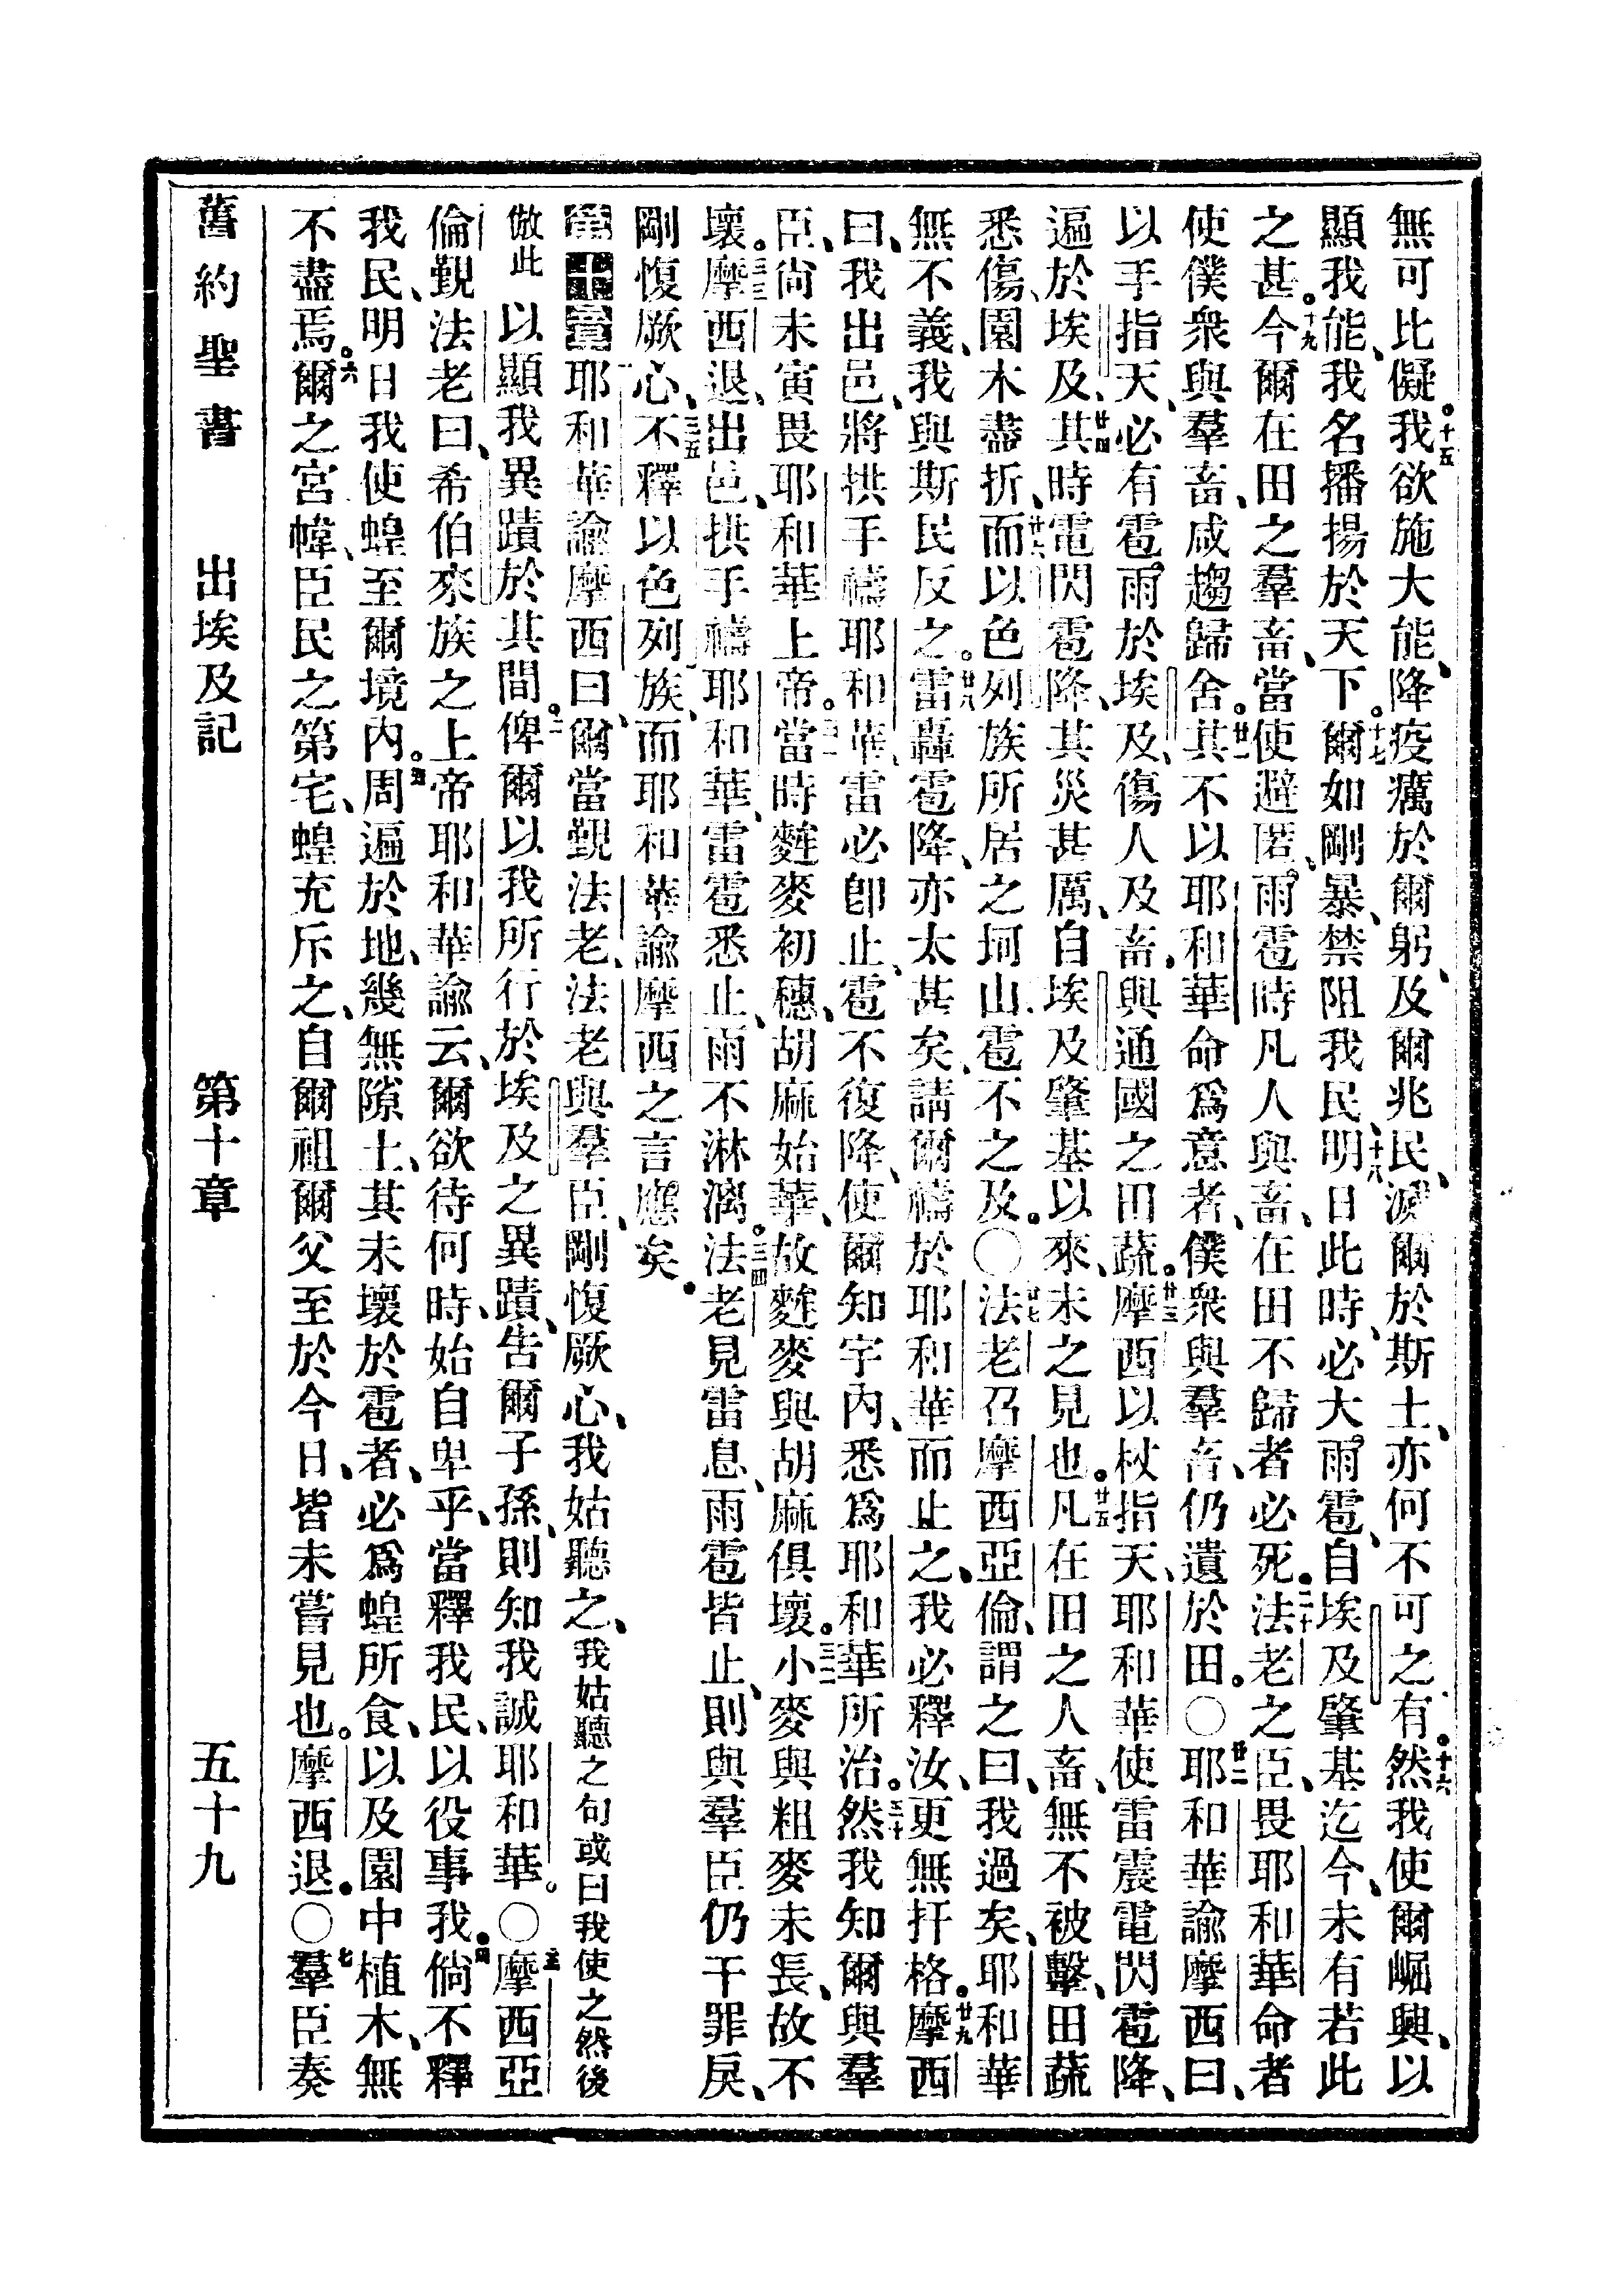 無可比儗。十五我欲施大能、降疫癘於爾躬、及爾兆民、滅爾於斯土、亦何不可之有。十六然我使爾崛興、以
顯我能、我名播揚於天下。十七爾如剛暴、禁阻我民、十八明日此時、必大雨雹、自埃及肇基迄今、未有若此
之甚。十九今爾在田之羣畜、當使避匿、雨雹時凡人與畜、在田不歸者必死。二十法老之臣、畏耶和華命者
使僕衆與羣畜、咸趨歸舍。廿一其不以耶和華命爲意者、僕衆與羣畜、仍遺於田。〇廿二耶和華諭摩西曰、
以手指天、必有雹雨於埃及、傷人及畜、與通國之田蔬。廿三摩西以杖指天、耶和華使雷震電閃雹降、
遍於埃及、廿四其時電閃雹降、其災甚厲、自埃及肇基以來、未之見也。廿五凡在田之人畜、無不被擊、田蔬
悉傷、園木盡折、廿六而以色列族所居之坷山、雹不之及。〇廿七法老召摩西亞倫、謂之曰、我過矣、耶和華
無不義、我與斯民反之。廿八雷轟雹降、亦太甚矣、請爾禱於耶和華而止之、我必釋汝、更無扞格。廿九摩西
曰、我出邑、將拱手禱耶和華、雷必卽止、雹不復降、使爾知宇內、悉爲耶和華所治。三十然我知爾與羣
臣、尙未寅畏耶和華上帝。三一當時麰麥初穗、胡麻始華、故麰麥與胡麻俱壞。三二小麥與粗麥未長、故不
壞。三三摩西退、出邑、拱手禱耶和華、雷雹悉止、雨不淋漓。三四法老見雷息、雨雹皆止、則與羣臣仍干罪戾、
剛愎厥心、三五不釋以色列族、而耶和華諭摩西之言應矣。
第十章耶和華諭摩西曰、爾當覲法老、法老與羣臣、剛愎厥心、我姑聽之、我姑聽之句或曰我使之然後
倣此以顯我異蹟於其間。二俾爾以我所行於埃及之異蹟、告爾子孫、則知我誠耶和華。〇三摩西亞
倫覲法老曰、希伯來族之上帝耶和華諭云、爾欲待何時、始自卑乎、當釋我民、以役事我。四倘不釋
我民、明日我使蝗至爾境內。五周遍於地、幾無隙土、其未壞於雹者、必爲蝗所食、以及園中植木、無
不盡焉。六爾之宮幃、臣民之第宅、蝗充斥之、自爾祖爾父至於今日、皆未嘗見也。摩西退。〇七羣臣奏
舊約聖書　出埃及記　第十章　五十九